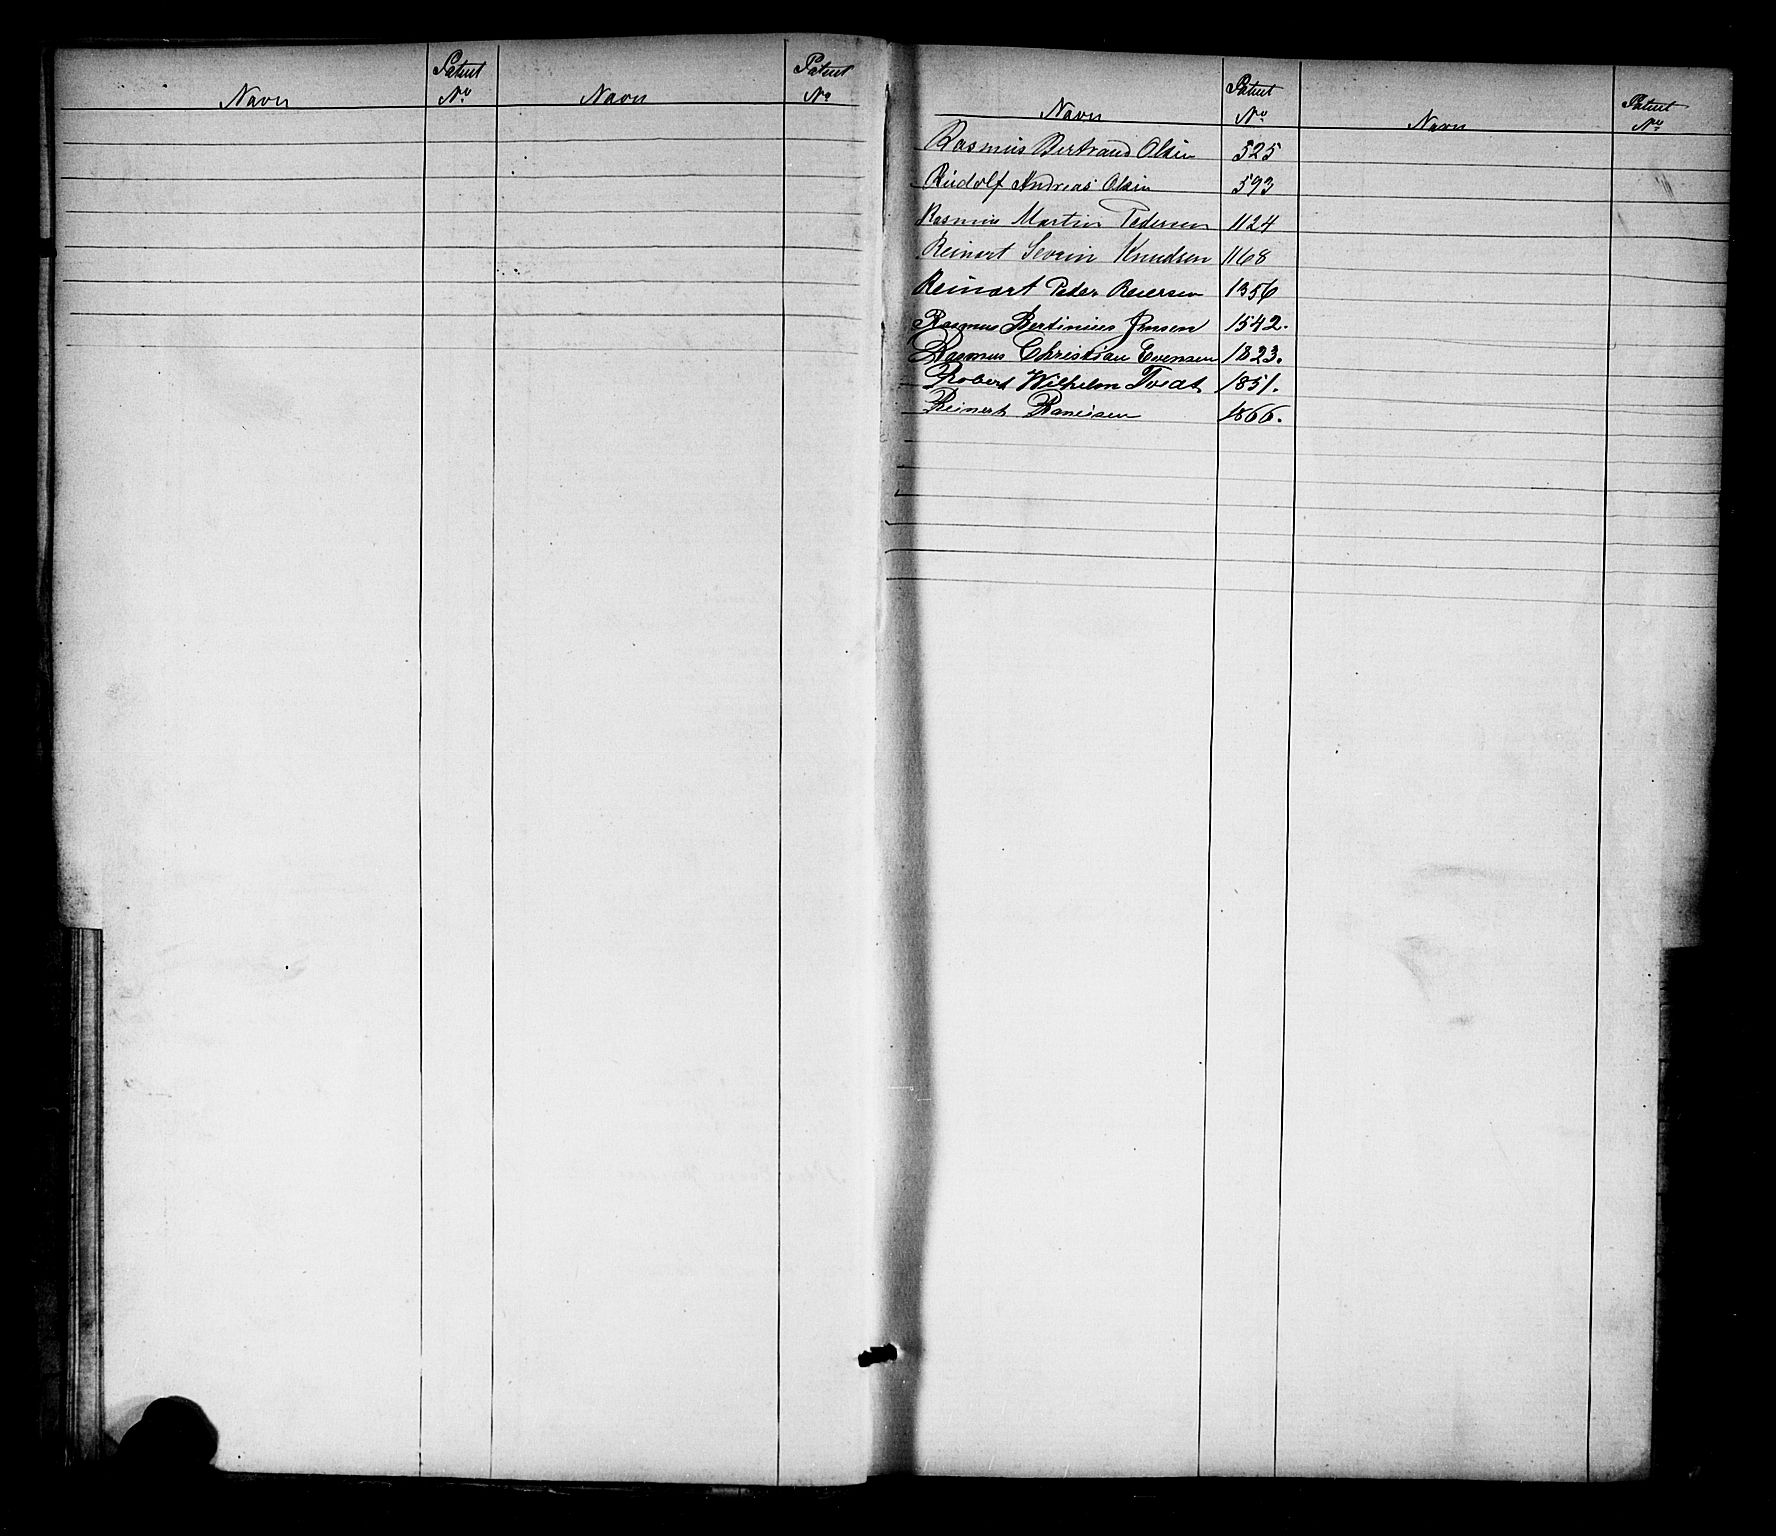 Navn Patent No Navn Patent No
Navn Patent No Navn Patent No
Rasmus Bertrand Olsen 525
Rudolf Andreas Olsen 593
Rasmus Martin Pedersen 1124
Reinart Severin Knudsen 1168
Reinart Peder Reiersen 1356
Rasmus Bertinius Jensen 1542.
Rasmus Christian Evensen 1823.
Robert Wilhelm Tvedt 1851.
Reinert 1866.